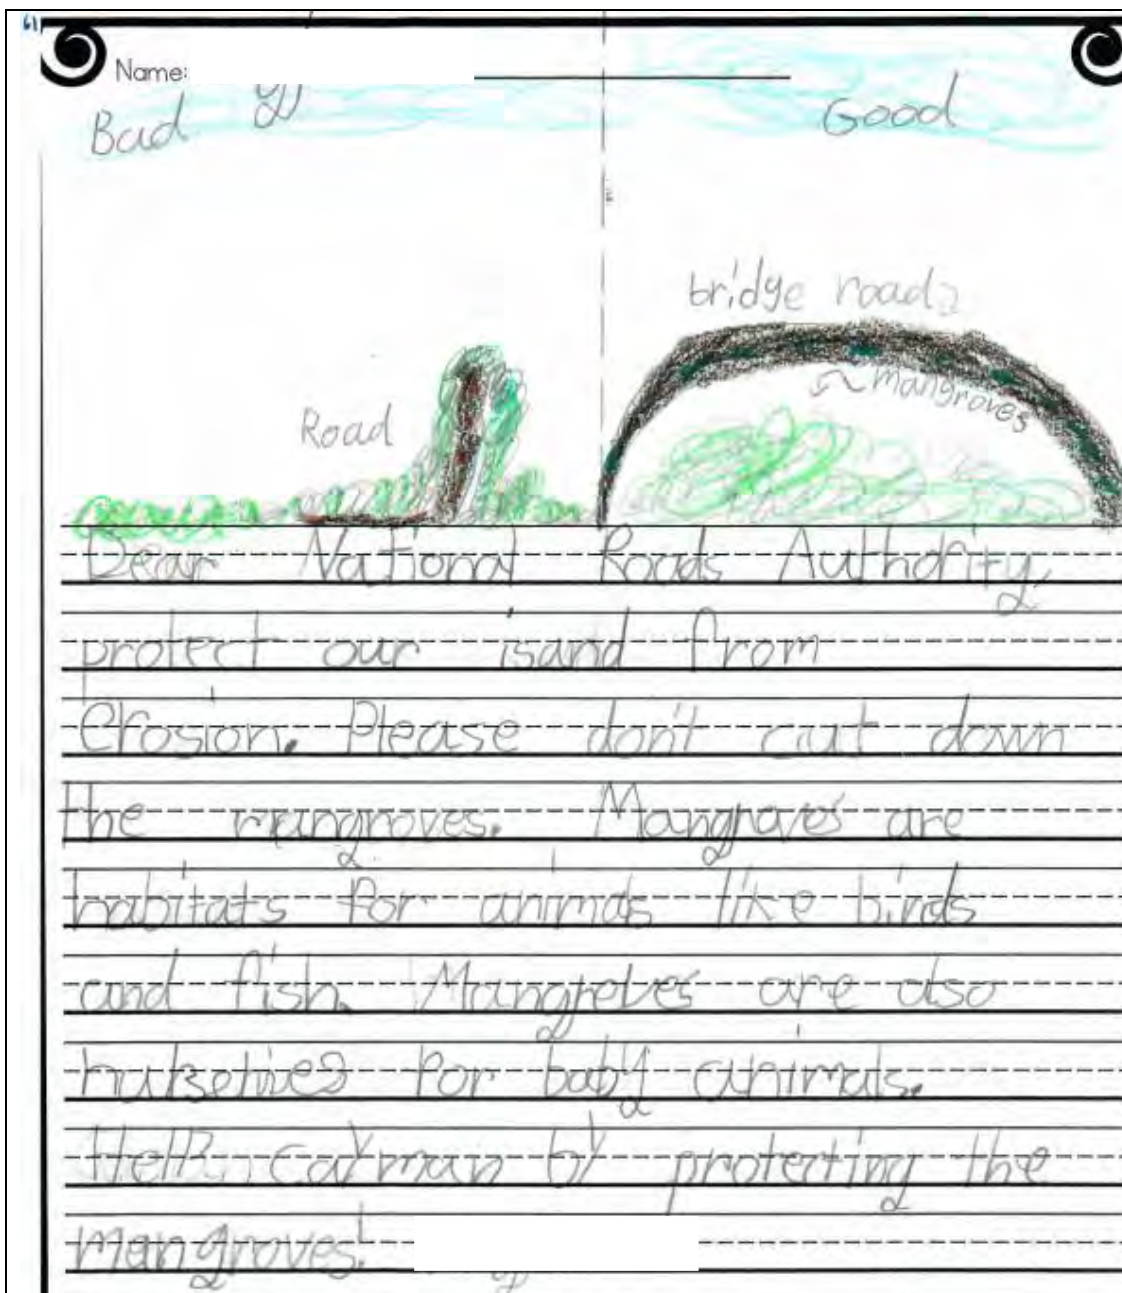 61
Name:
Bad
Good
bridge road
mangroves
Road
Dear National Roads Authority,
protect our isand from
Erosion. Please don't cut down
the mangroves. Mangroves are
habitats for animals like birds
and fish. Mangroves are also
nurseries for baby animals.
Help Cayman by protecting the
mangroves!